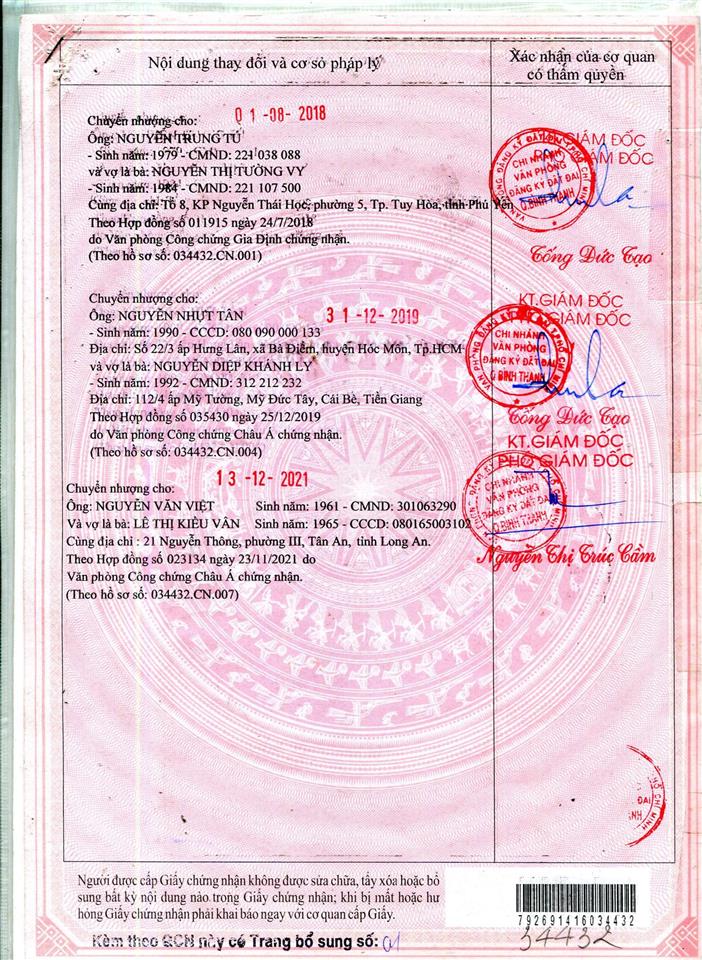 Nội dung thay đổi và cơ sở pháp lý
Xác nhận của cơ quan
có thẩm quyền
Chuyển nhượng cho:
01-08-2018
Ông: NGUYỄN TRUNG TÚ
- Sinh năm: 1979 - CMND: 221 038 088
và vợ là bà: NGUYỄN THỊ TƯỜNG VY
- Sinh năm: 1984 - CMND: 221 107 500
Cùng địa chỉ: Tổ 8, KP Nguyễn Thái Học, phường 5, Tp. Tuy Hòa, tỉnh Phú Yên
Theo Hợp đồng số 011915 ngày 24/7/2018
do Văn phòng Công chứng Gia Định chứng nhận.
(Theo hồ sơ số: 034432.CN.001)
GIÁM ĐỐC
GIÁM ĐỐC
CHI NHÁNH
VĂN PHÒNG
ĐĂNG KÝ ĐẤT ĐAI
Q.BÌNH THẠNH
Tống Đức Tạo
Chuyển nhượng cho:
Ông: NGUYỄN NHỰT TÂN
31-12-2019
- Sinh năm: 1990 - CCCD: 080 090 000 133
Địa chỉ: Số 22/3 ấp Hưng Lân, xã Bà Điểm, huyện Hóc Môn, Tp.HCM
và vợ là bà: NGUYỄN DIỆP KHÁNH LY
- Sinh năm: 1992 - CMND: 312 212 232
Địa chỉ: 112/4 ấp Mỹ Tường, Mỹ Đức Tây, Cái Bè, Tiền Giang
Theo Hợp đồng số 035430 ngày 25/12/2019
do Văn phòng Công chứng Châu Á chứng nhận.
(Theo hồ sơ số: 034432.CN.004)
KT.GIÁM ĐỐC
GIÁM ĐỐC
CHI NHÁNH
VĂN PHÒNG
ĐĂNG KÝ ĐẤT ĐAI
Q.BÌNH THẠNH
Tống Đức Tạo
13-12-2021
Chuyển nhượng cho:
Ông: NGUYỄN VĂN VIỆT Sinh năm: 1961 - CMND: 301063290
Và vợ là bà: LÊ THỊ KIỀU VÂN Sinh năm: 1965 - CCCD: 080165003102
Cùng địa chỉ : 21 Nguyễn Thông, phường III, Tân An, tỉnh Long An.
Theo Hợp đồng số 023134 ngày 23/11/2021 do
Văn phòng Công chứng Châu Á chứng nhận.
(Theo hồ sơ số: 034432.CN.007)
KT.GIÁM ĐỐC
PHÓ GIÁM ĐỐC
CHI NHÁNH
VĂN PHÒNG
ĐĂNG KÝ ĐẤT ĐAI
Q.BÌNH THẠNH
Nguyễn Thị Trúc Cầm
HỒ CHÍ MINH
ĐAI
Người được cấp Giấy chứng nhận không được sửa chữa, tẩy xóa hoặc bổ
sung bất kỳ nội dung nào trong Giấy chứng nhận; khi bị mất hoặc hư
hỏng Giấy chứng nhận phải khai báo ngay với cơ quan cấp Giấy.
792691416034432
34432
Kèm theo GCN này có Trang bổ sung số: 01